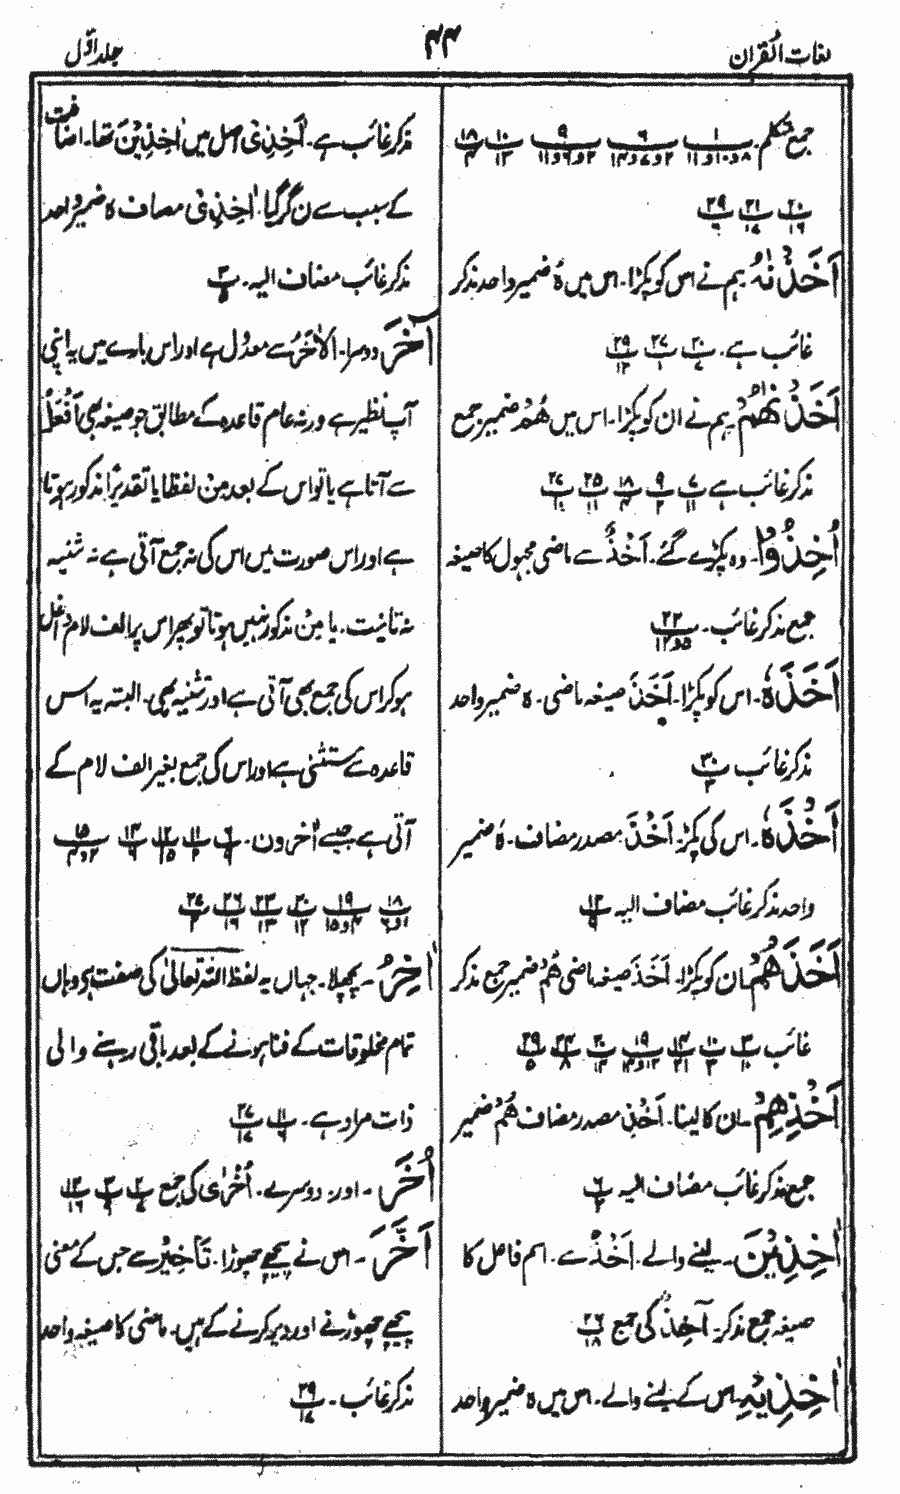 لغات القرآن
۴۴
جلد اوّل
جمع متکلم۔ ۱/۸و۱۰و۱۱ ۶/۲و۷و۱۴ ۹/۲و۶و۱۱ ۱۰/۱۳ ۱۸/۴
۲۰/۱۶ ۲۱/۱۷ ۲۹/۶
اَخَذْنٰہُ ہم نے اس کو پکڑا۔ اس میں ہٗ ضمیر واحد مذکر
غائب ہے۔ ۲۰/۷ ۲۷/۱ ۲۹/۱۳
اَخَذْنٰھُمْ ہم نے ان کو پکڑا۔ اس میں ھُمْ ضمیر جمع
مذکر غائب ہے ۷/۱۱ ۹/۲ ۱۸/۴ ۲۵/۱۱ ۲۷/۱۰
اُخِذُوْا۔ وہ پکڑے گئے۔ اَخْذٌ سے ماضی مجہول کا صیغہ
جمع مذکر غائب۔ ۲۲/۵و۱۲
اَخَذَہٗ۔ اس کو پکڑا۔ اَخَذَ صیغہ ماضی۔ ہ ضمیر واحد
مذکر غائب ۳۰/۳
اَخْذُہٗ۔ اس کی پکڑ۔ اَخْذُ مصدر مضاف۔ ہٗ ضمیر
واحد مذکر غائب مضاف الیہ ۱۲/۹
اَخَذَھُمْ ان کو پکڑا۔ اَخَذَ صیغہ ماضی ھُمْ ضمیر جمع مذکر
غائب ۳/۱۰ ۱۰/۳ ۱۴/۲۱ ۱۹/۱۲و۱۴ ۲۰/۱۴ ۲۴/۸ ۲۹/۵
اَخْذِھِمْ۔ ان کا لینا۔ اَخْذِ مصدر مضاف ھُمْ ضمیر
جمع مذکر غائب مضاف الیہ ۶/۲
اٰخِذِیْنَ۔ لینے والے۔ اَخْذٌ سے۔ اسم فاعل کا
صیغہ جمع مذکر۔ اٰخِذٌ کی جمع ۲۶/۱۸
اٰخِذِیْہِ اس کے لینے والے۔ اس میں ہ ضمیر واحد
مذکر غائب ہے۔ اٰخِذِی اصل میں اٰخِذِیْنَ تھا۔ اضافت
کے سبب سے ن گر گیا۔ اٰخِذِی مضاف ہ ضمیر واحد
مذکر غائب مضاف الیہ۔ ۳/۵
اٰخَرَ دوسرا۔ اَلْاٰخَرُ سے معدول ہے اور اس بارے میں یہ اپنی
آپ نظیر ہے ورنہ عام قاعدہ کے مطابق جو صیغہ بھی اَفْعَلُ
سے آتا ہے یا تو اس کے بعد مِن لفظًا یا تقدیرًا مذکور ہوتا
ہے اور اس صورت میں اس کی نہ جمع آتی ہے نہ تثنیہ
نہ تانیث۔ یا مِنْ مذکور نہیں ہوتا تو پھر اس پر الف لام داخل
ہو کر اس کی جمع بھی آتی ہے اور تثنیہ بھی۔ البتہ یہ اس
قاعدہ سے مستثنٰی ہے اور اس کی جمع بغیر الف لام کے
آتی ہے جیسے اٰخرون۔ ۶/۹ ۱۱/۲ ۱۲/۱۵ ۱۴/۹ ۱۵/۲و۳
۱۸/۱و۶ ۱۹/۴و۱۵ ۲۰/۱۲ ۲۳/۱۳ ۲۶/۱۶ ۲۷/۲
اٰخِرُ۔ پچھلا۔ جہاں یہ لفظ اللہ تعالیٰ کی صفت ہو وہاں
تمام مخلوقات کے فنا ہونے کے بعد باقی رہنے والی
ذات مراد ہے۔ ۱۱/۶ ۲۷/۱۷
اُخَرَ۔ اور۔ دوسرے۔ اُخْرٰی کی جمع ۲/۷ ۳/۹ ۱۲/۱۶
اَخَّرَ۔ اس نے پیچھے چھوڑا۔ تَاْخِیْرٌ سے جس کے معنی
پیچھے چھوڑنے اور دیر کرنے کے ہیں۔ ماضی کا صیغہ واحد
مذکر غائب۔ ۲۹/۱۷